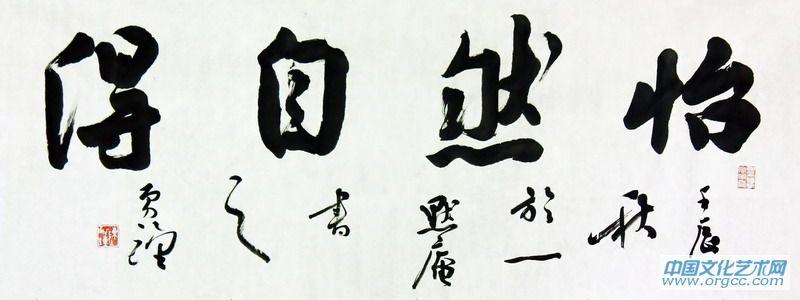 怡然自得
壬辰秋於一默庵書之
中国文化艺术网
www.orgcc.com